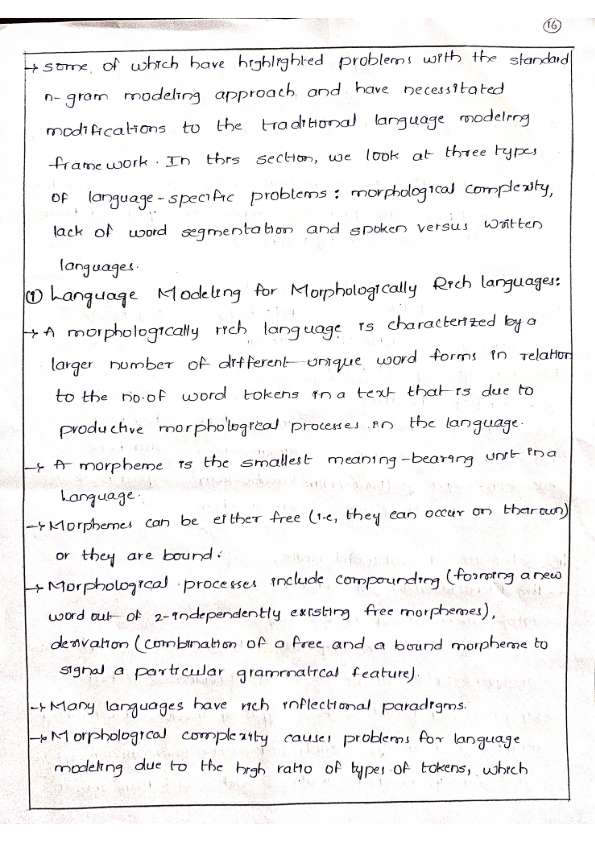 16
→ some of which have highlighted problems with the standard
n-gram modeling approach and have necessitated
modifications to the traditional language modeling
framework. In this section, we look at three types
of language-specific problems: morphological complexity,
lack of word segmentation and spoken versus written
languages.
① Language Modeling for Morphologically Rich languages:
→ A morphologically rich language is characterized by a
larger number of different unique word forms in relation
to the no.of word tokens in a text that is due to
productive morphological processes in the language.
→ A morpheme is the smallest meaning-bearing unit in a
Language.
→ Morphemes can be either free (i.e, they can occur on their own)
or they are bound.
→ Morphological processes include compounding (forming a new
word out of 2-independently existing free morphemes),
derivation (combination of a free and a bound morpheme to
signal a particular grammatical feature).
→ Many languages have rich inflectional paradigms.
→ Morphological complexity causes problems for language
modeling due to the high ratio of types of tokens, which